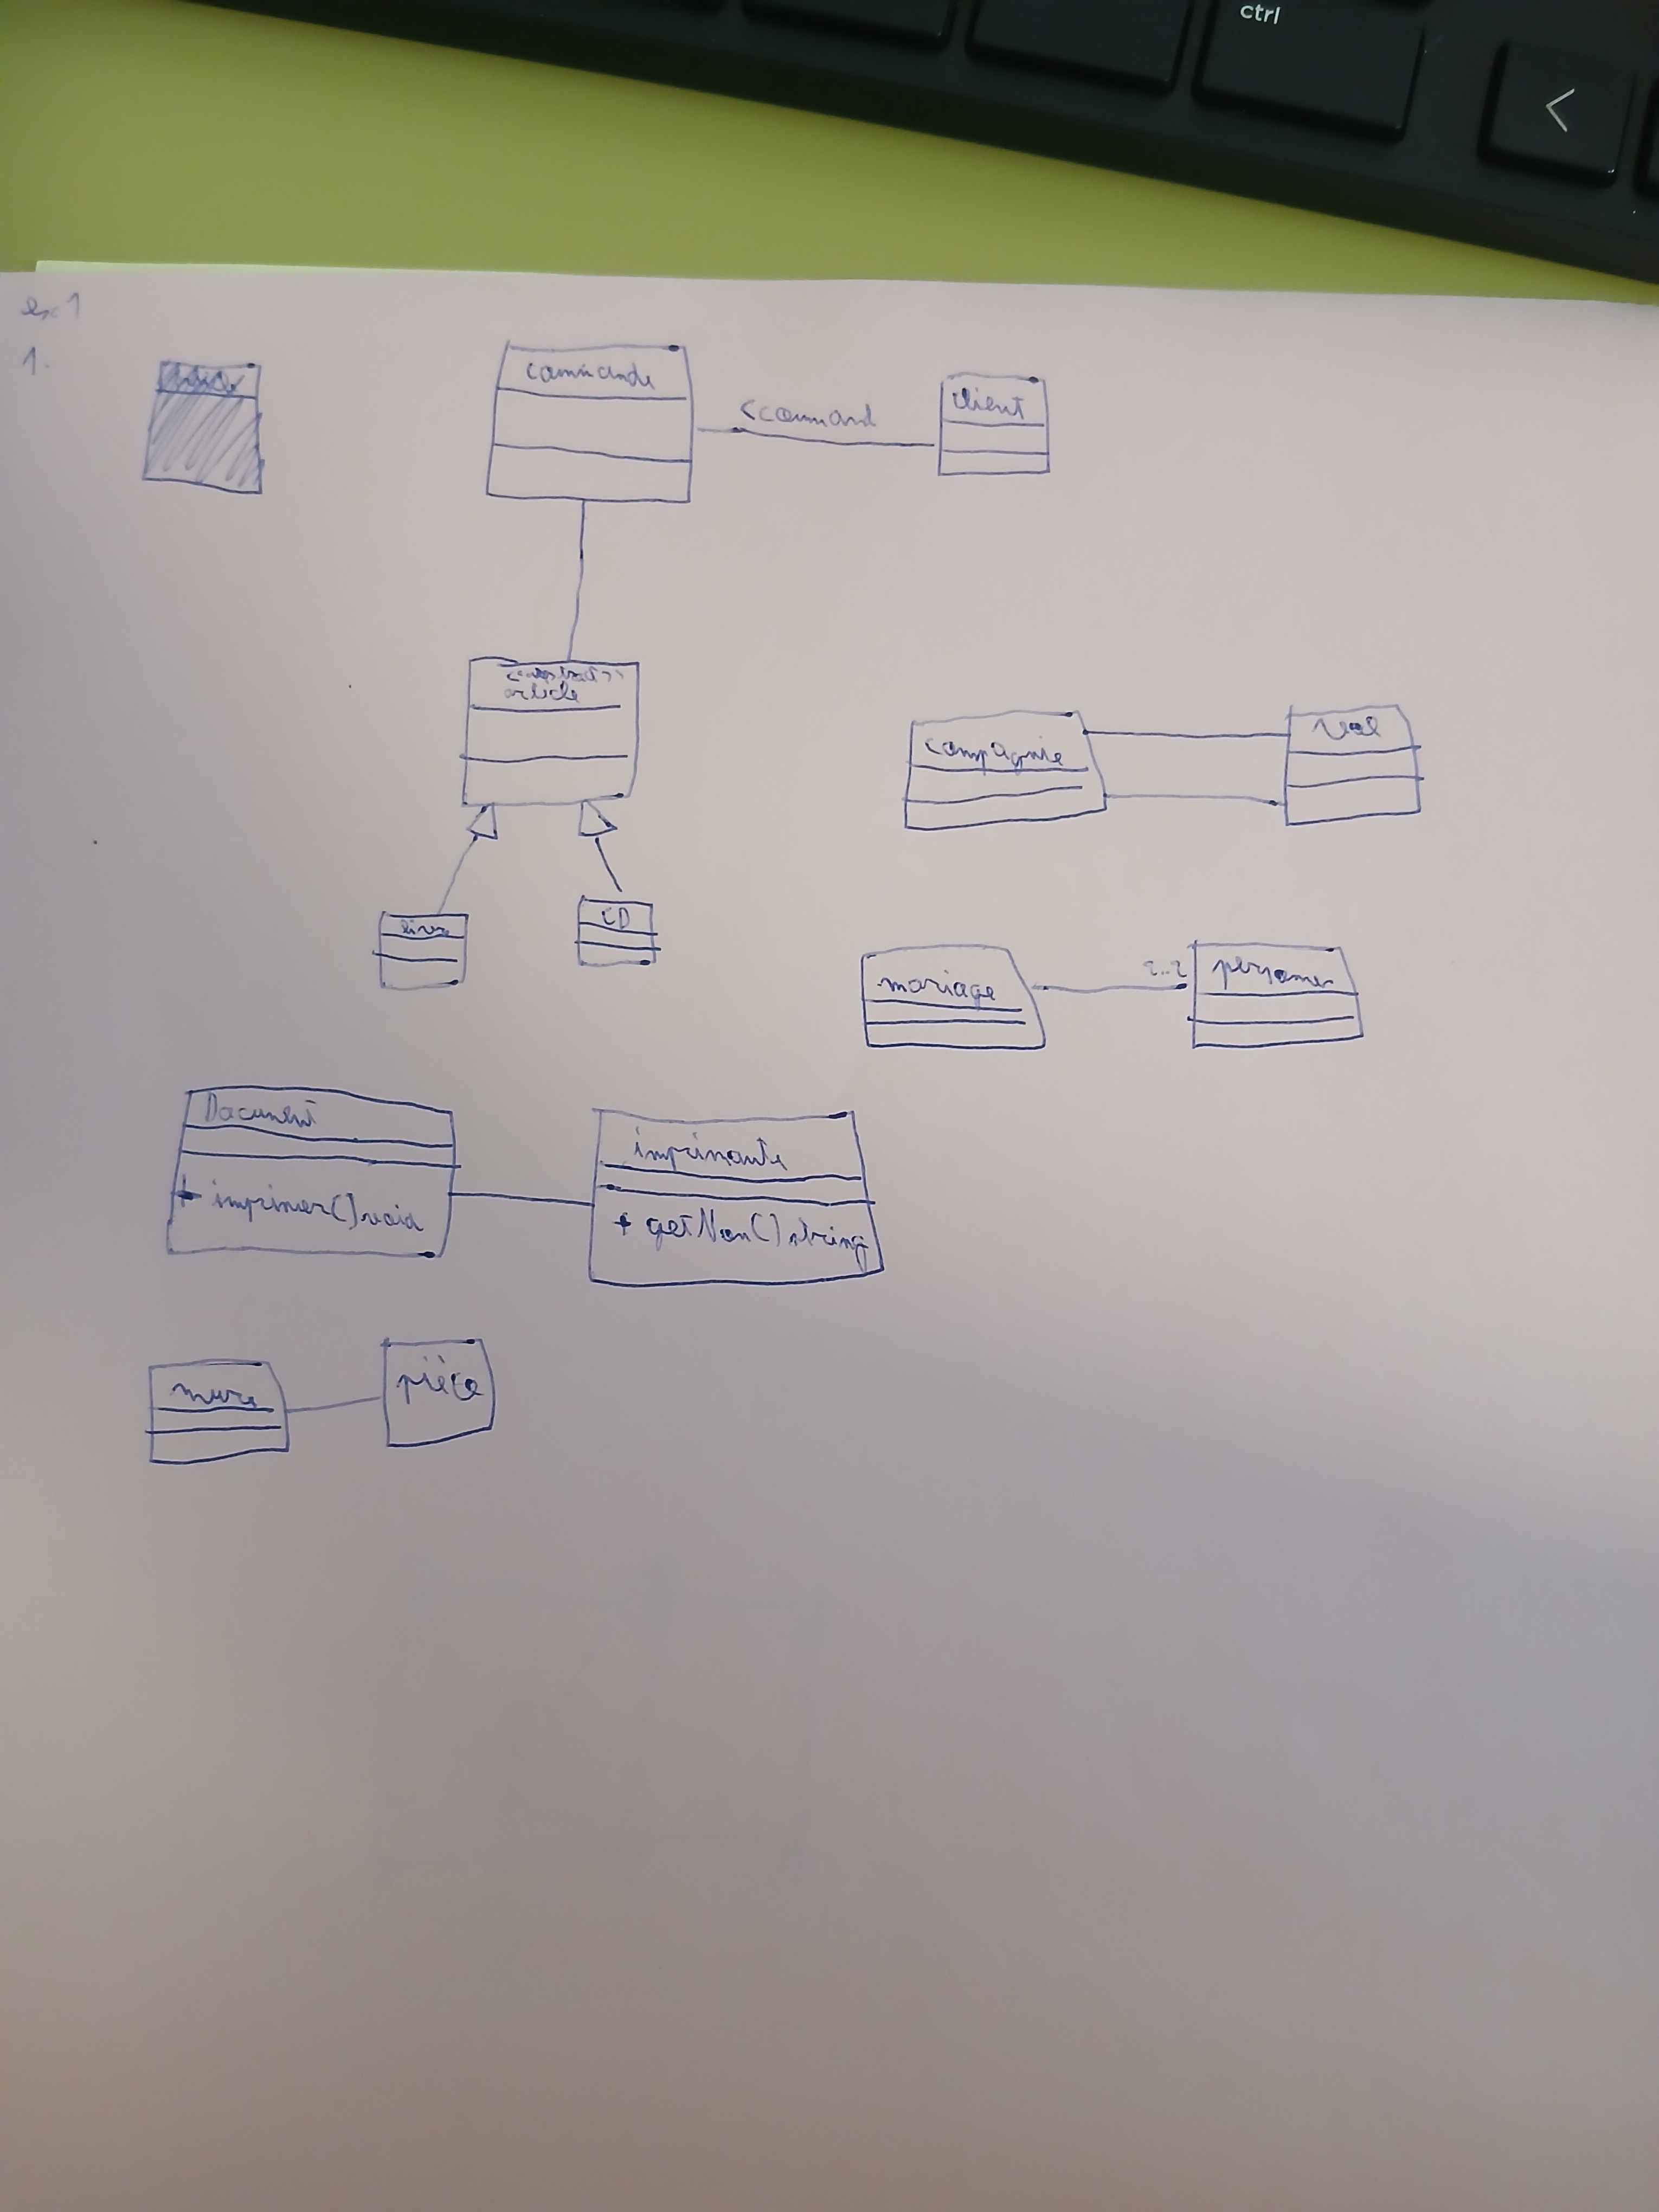 ctrl
<
ex 1
1.
commande
<command
client
article
compagnie
vol
livre
CD
mariage
2..2
personnes
Document
+ imprimer() void
imprimante
+ getNom() string
murs
pièce